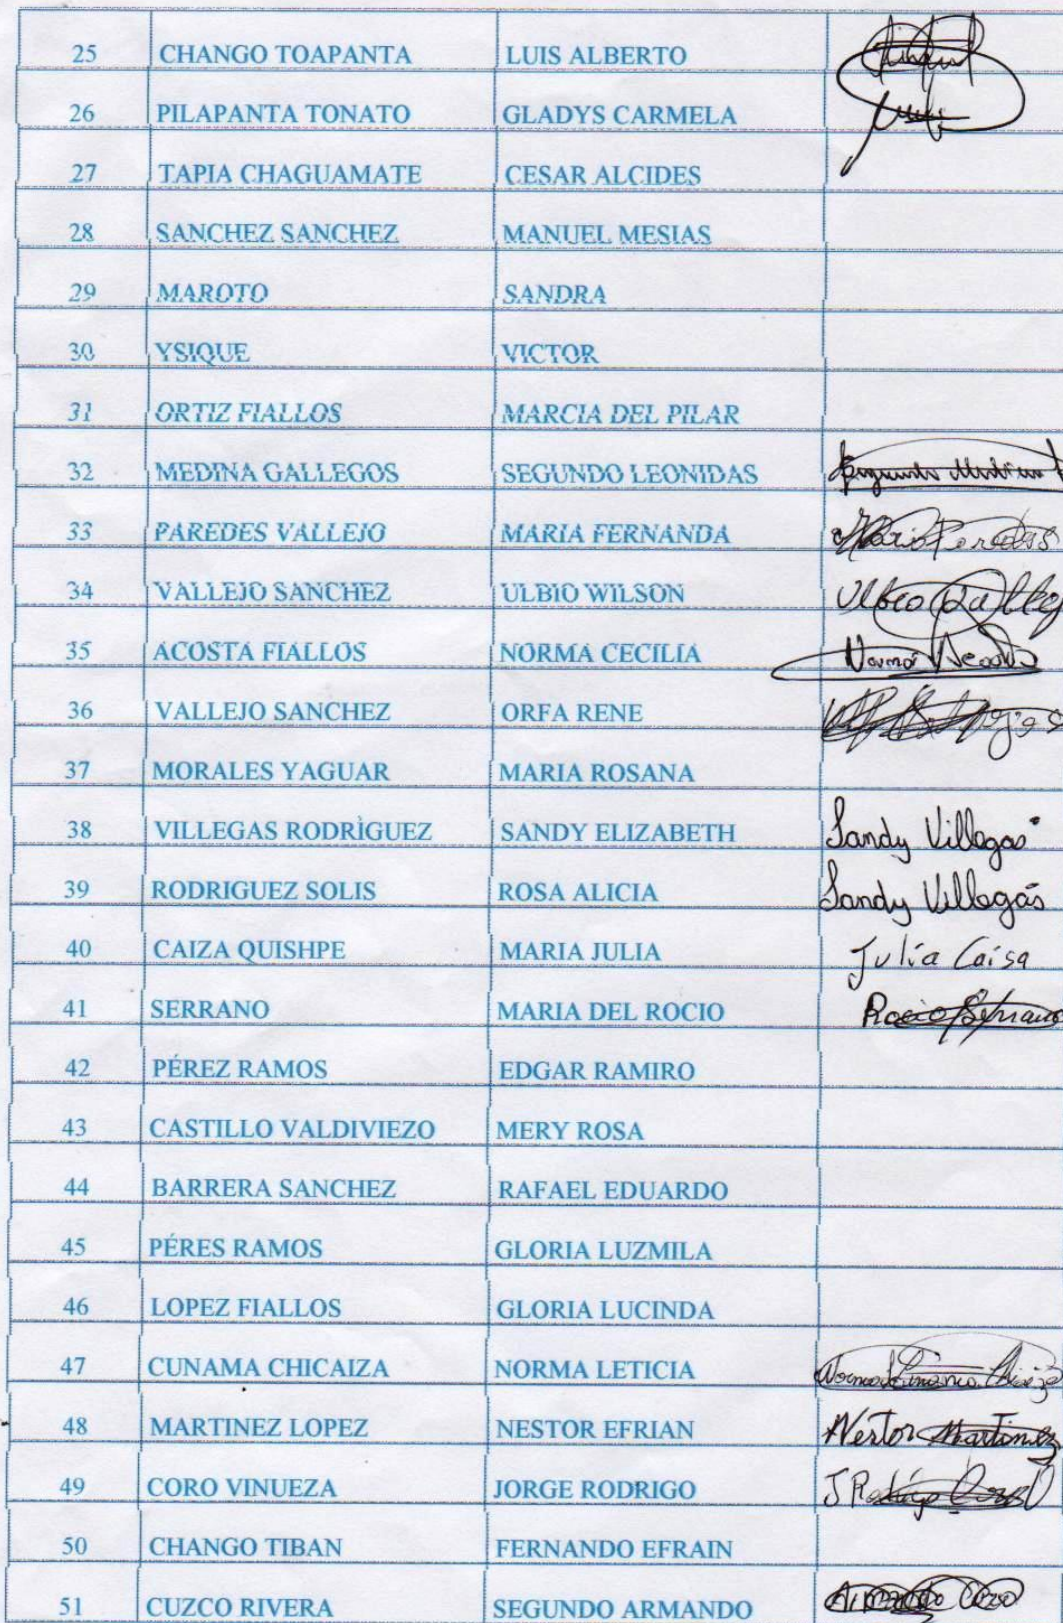 25 CHANGO TOAPANTA LUIS ALBERTO
26 PILAPANTA TONATO GLADYS CARMELA
27 TAPIA CHAGUAMATE CESAR ALCIDES
28 SANCHEZ SANCHEZ MANUEL MESIAS
29 MAROTO SANDRA
30 YSIQUE VICTOR
31 ORTIZ FIALLOS MARCIA DEL PILAR
32 MEDINA GALLEGOS SEGUNDO LEONIDAS Segundo Medina
33 PAREDES VALLEJO MARIA FERNANDA
34 VALLEJO SANCHEZ ULBIO WILSON Ulbio
35 ACOSTA FIALLOS NORMA CECILIA Norma Acosta
36 VALLEJO SANCHEZ ORFA RENE
37 MORALES YAGUAR MARIA ROSANA
38 VILLEGAS RODRÌGUEZ SANDY ELIZABETH Sandy Villegas
39 RODRIGUEZ SOLIS ROSA ALICIA Sandy Villegas
40 CAIZA QUISHPE MARIA JULIA Julia Caisa
41 SERRANO MARIA DEL ROCIO Rocio Serrano
42 PÉREZ RAMOS EDGAR RAMIRO
43 CASTILLO VALDIVIEZO MERY ROSA
44 BARRERA SANCHEZ RAFAEL EDUARDO
45 PÉRES RAMOS GLORIA LUZMILA
46 LOPEZ FIALLOS GLORIA LUCINDA
47 CUNAMA CHICAIZA NORMA LETICIA
48 MARTINEZ LOPEZ NESTOR EFRIAN Nestor Martinez
49 CORO VINUEZA JORGE RODRIGO J Rodrigo Coro V
50 CHANGO TIBAN FERNANDO EFRAIN
51 CUZCO RIVERA SEGUNDO ARMANDO